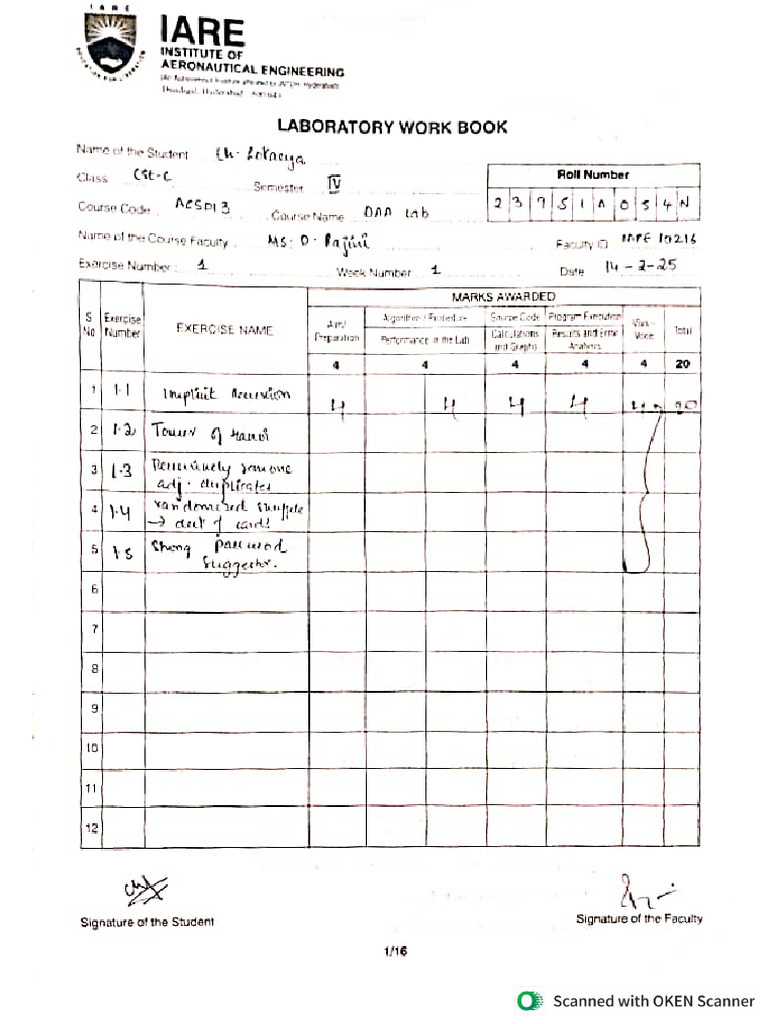 IARE
IARE
INSTITUTE OF
AERONAUTICAL ENGINEERING
(An Autonomous Institute affiliated to JNTUH, Hyderabad)
Dundigal, Hyderabad - 500 043
EDUCATION FOR LIBERATION
LABORATORY WORK BOOK
Name of the Student Ch.
Class CSE-C Semester IV
Roll Number
2 3 9 5 1 A 0 5 4 N
Course Code ACSD13 Course Name DAA Lab
Name of the Course Faculty Ms. D. Rajini Faculty ID IARE 10216
Exercise Number: 1 Week Number 1 Date 14-2-25
MARKS AWARDED
S. No Exercise Number EXERCISE NAME Aim/ Preparation Algorithm / Procedure Source Code Program Execution Viva - Voce Total
Performance in the Lab Calculations and Graphs Results and Error Analysis
4 4 4 4 4 20
1 1.1 Implicit Recursion 4 4 4 4 4 20
2 1.2 Tower of Hanoi
3 1.3 Recursively remove
adj. duplicates
4 1.4 randomized shuffle
→ deck of cards
5 1.5 Strong password
suggestor.
6
7
8
9
10
11
12
Signature of the Student Signature of the Faculty
1/16
Scanned with OKEN Scanner